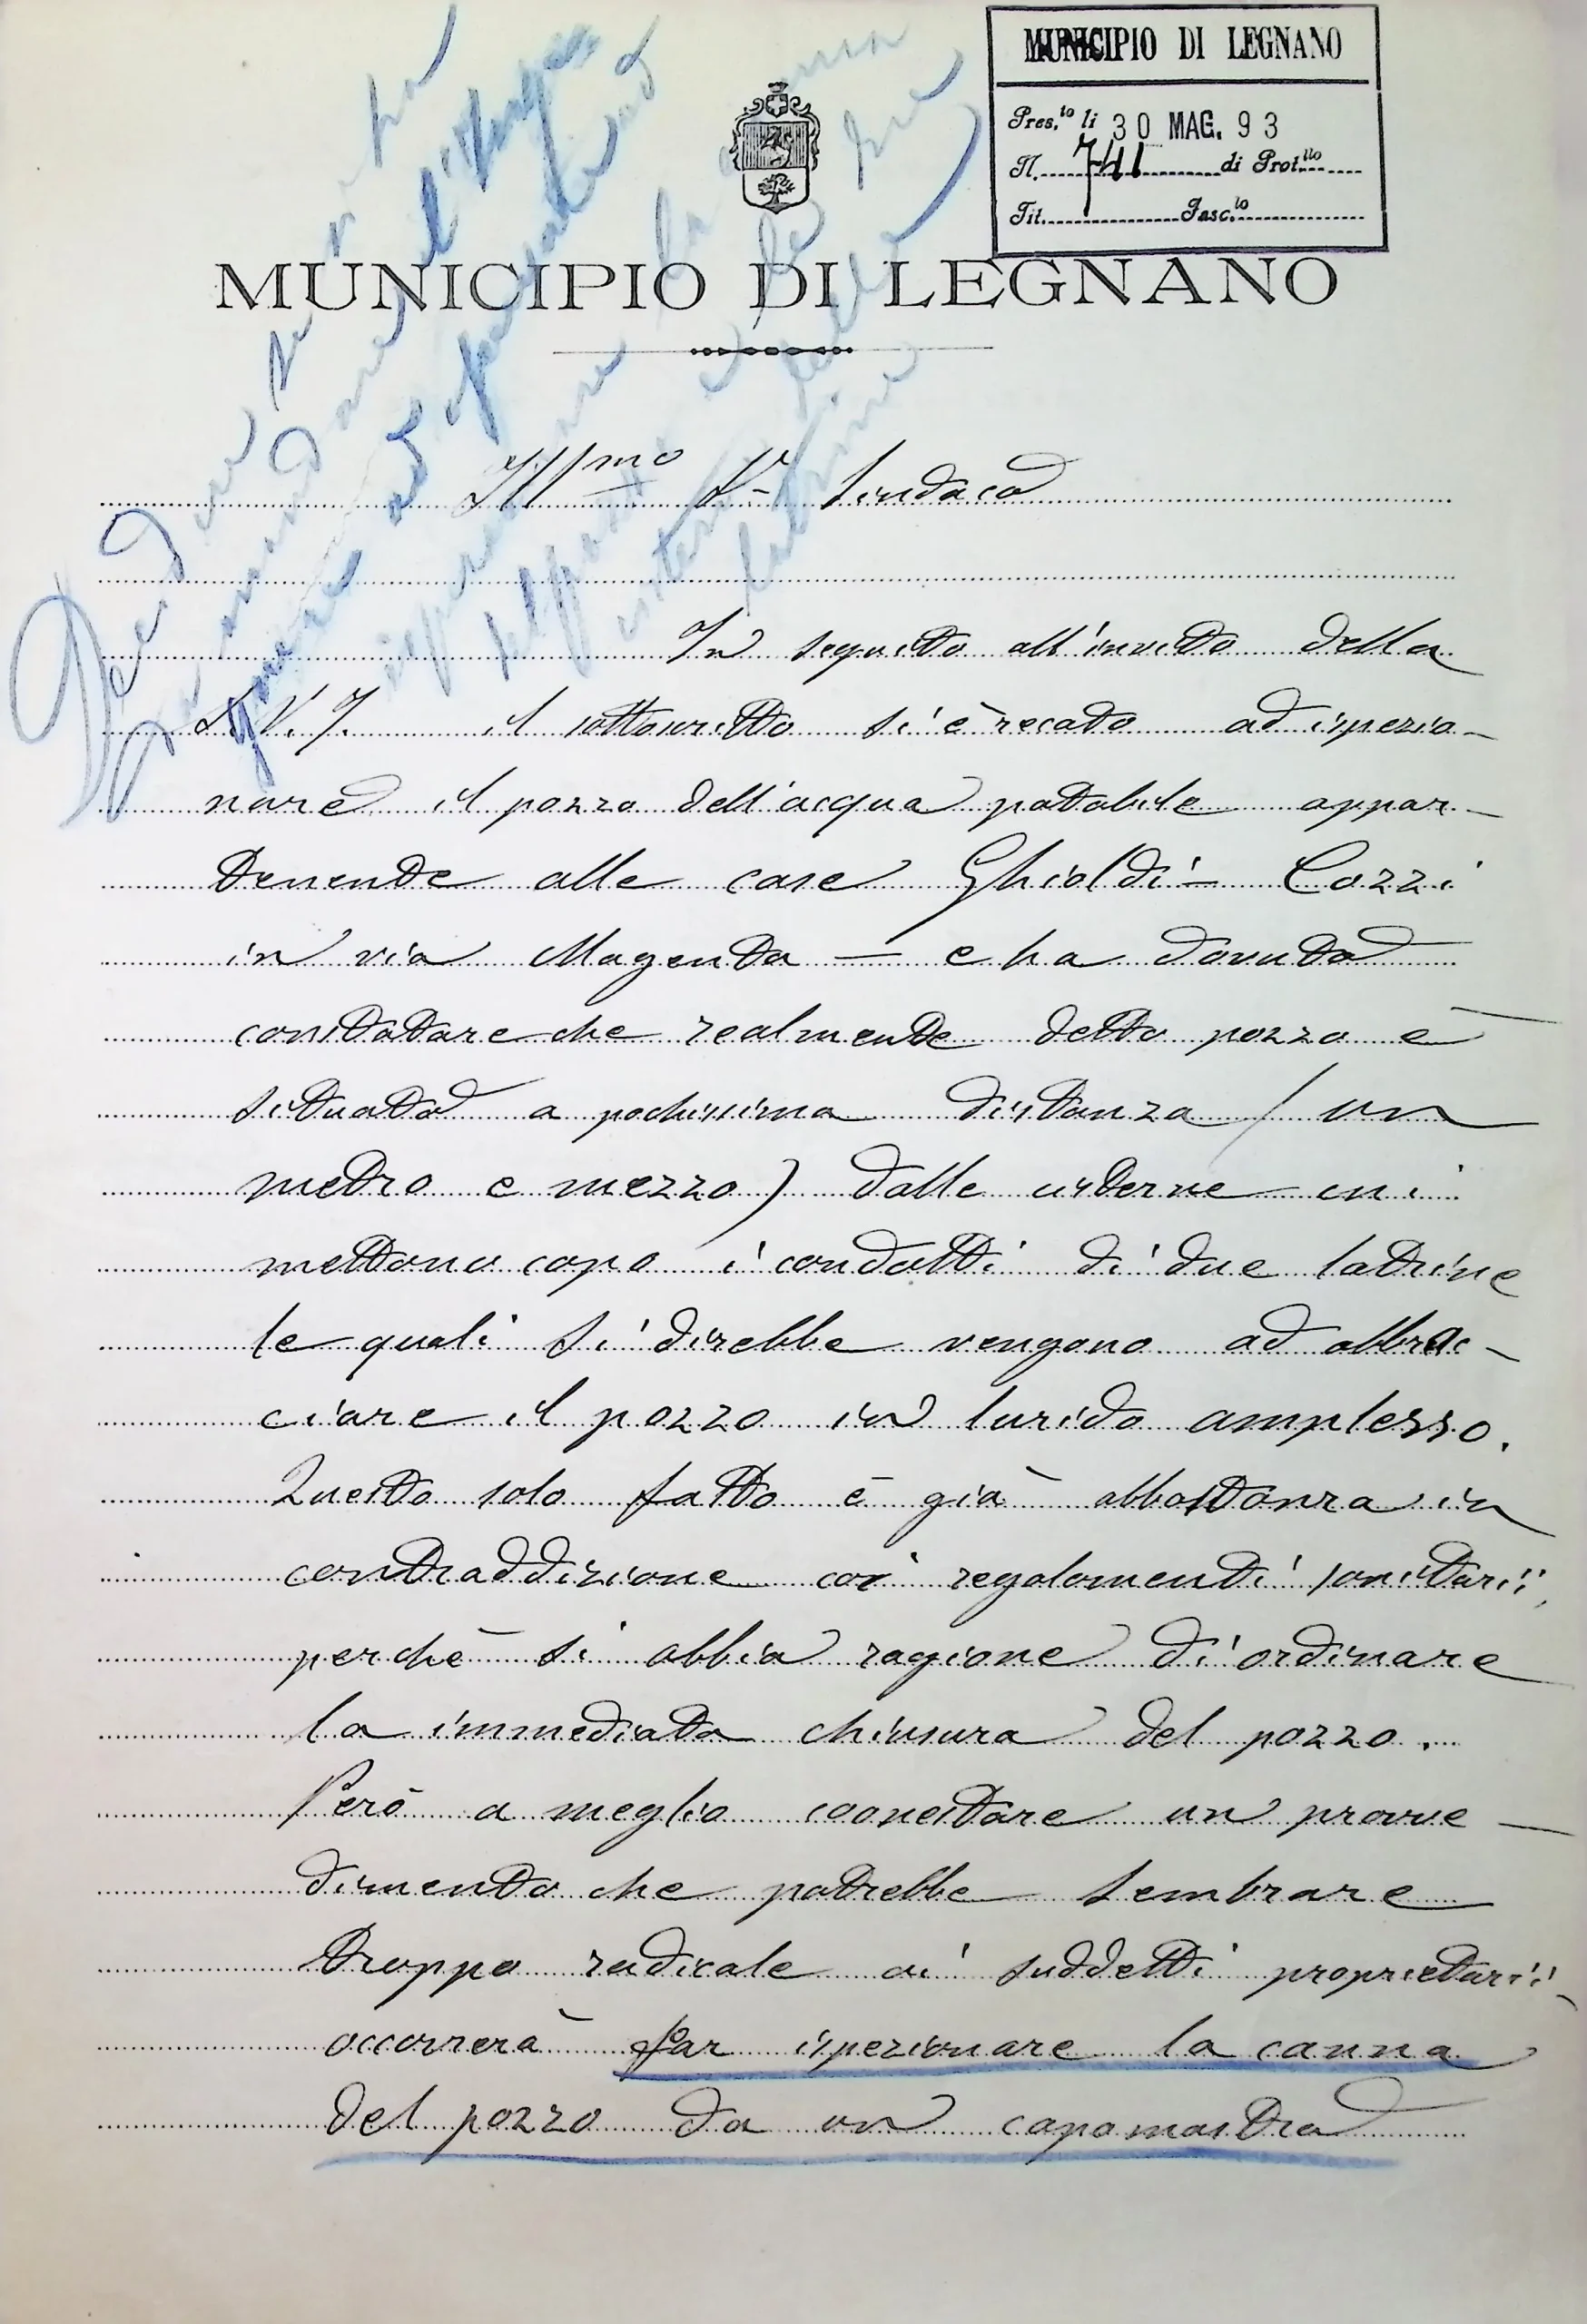 MUNICIPIO DI LEGNANO
Pres.to li 30 MAG. 93
N. 741 di Prot.llo
Tit. Fasc.lo
MUNICIPIO DI LEGNANO
Ill.mo Sr. Sindaco
In seguito all'invito della
S.V.I. il sottoscritto si è recato ad ispezio-
nare il pozzo dell'acqua potabile appar-
tenente alle case Ghioldi - Cozzi
in via Magenta — e ha dovuto
constatare che realmente detto pozzo è
situato a pochissima distanza (un
metro e mezzo) dalle cisterne cui
mettono capo i condotti di due latrine
le quali si direbbe vengono ad abbrac-
ciare il pozzo in lurido amplesso.
Questo solo fatto è già abbastanza in
contraddizione coi regolamenti sanitarii,
perchè si abbia ragione di ordinare
la immediata chiusura del pozzo.
Però a meglio coonestare un provve-
dimento che potrebbe sembrare
troppo radicale ai suddetti proprietarii,
occorrerà far ispezionare la canna
del pozzo da un capomastro